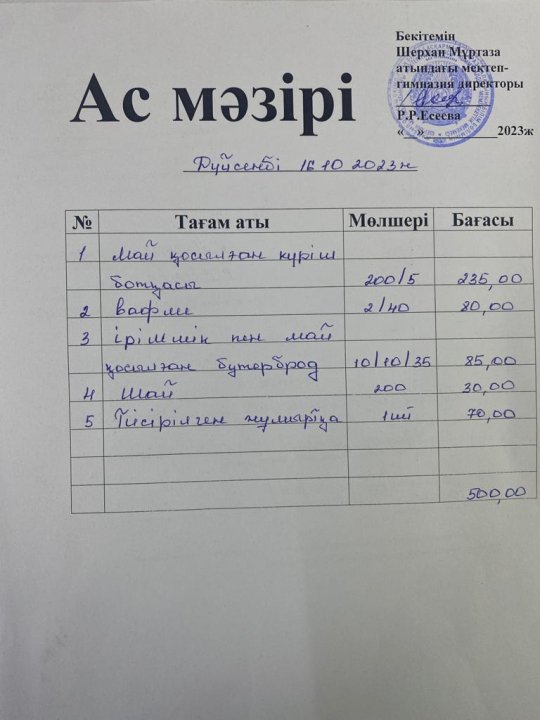 Бекітемін
Шерхан Мұртаза
атындағы мектеп-
гимназия директоры
Р.Р.Есеева
«__»__________2023ж
Ас мәзірі
Дүйсенбі 16 10 2023ж
№ Тағам аты Мөлшері Бағасы
1 Май қосылған күріш
ботқасы 200/5 235,00
2 вафли 2/40 80,00
3 ірімшік пен май
қосылған бутерброд 10/10/35 85,00
4 Шай 200 30,00
5 Пісірілген жұмыртқа 1шт 70,00
500,00